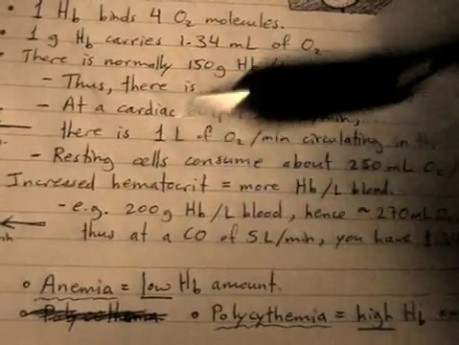 • 1 Hb binds 4 O2 molecules.
• 1 g Hb carries 1.34 mL of O2
• There is normally 150g Hb
- Thus, there is
- At a cardiac
there is 1 L of O2/min circulating in
- Resting cells consume about 250 mL O2
Increased hematocrit = more Hb/L blood.
- e.g. 200g Hb/L blood, hence ~270mL
thus at a CO of 5L/min, you have
• Anemia = low Hb amount.
• Polycythemia = high Hb